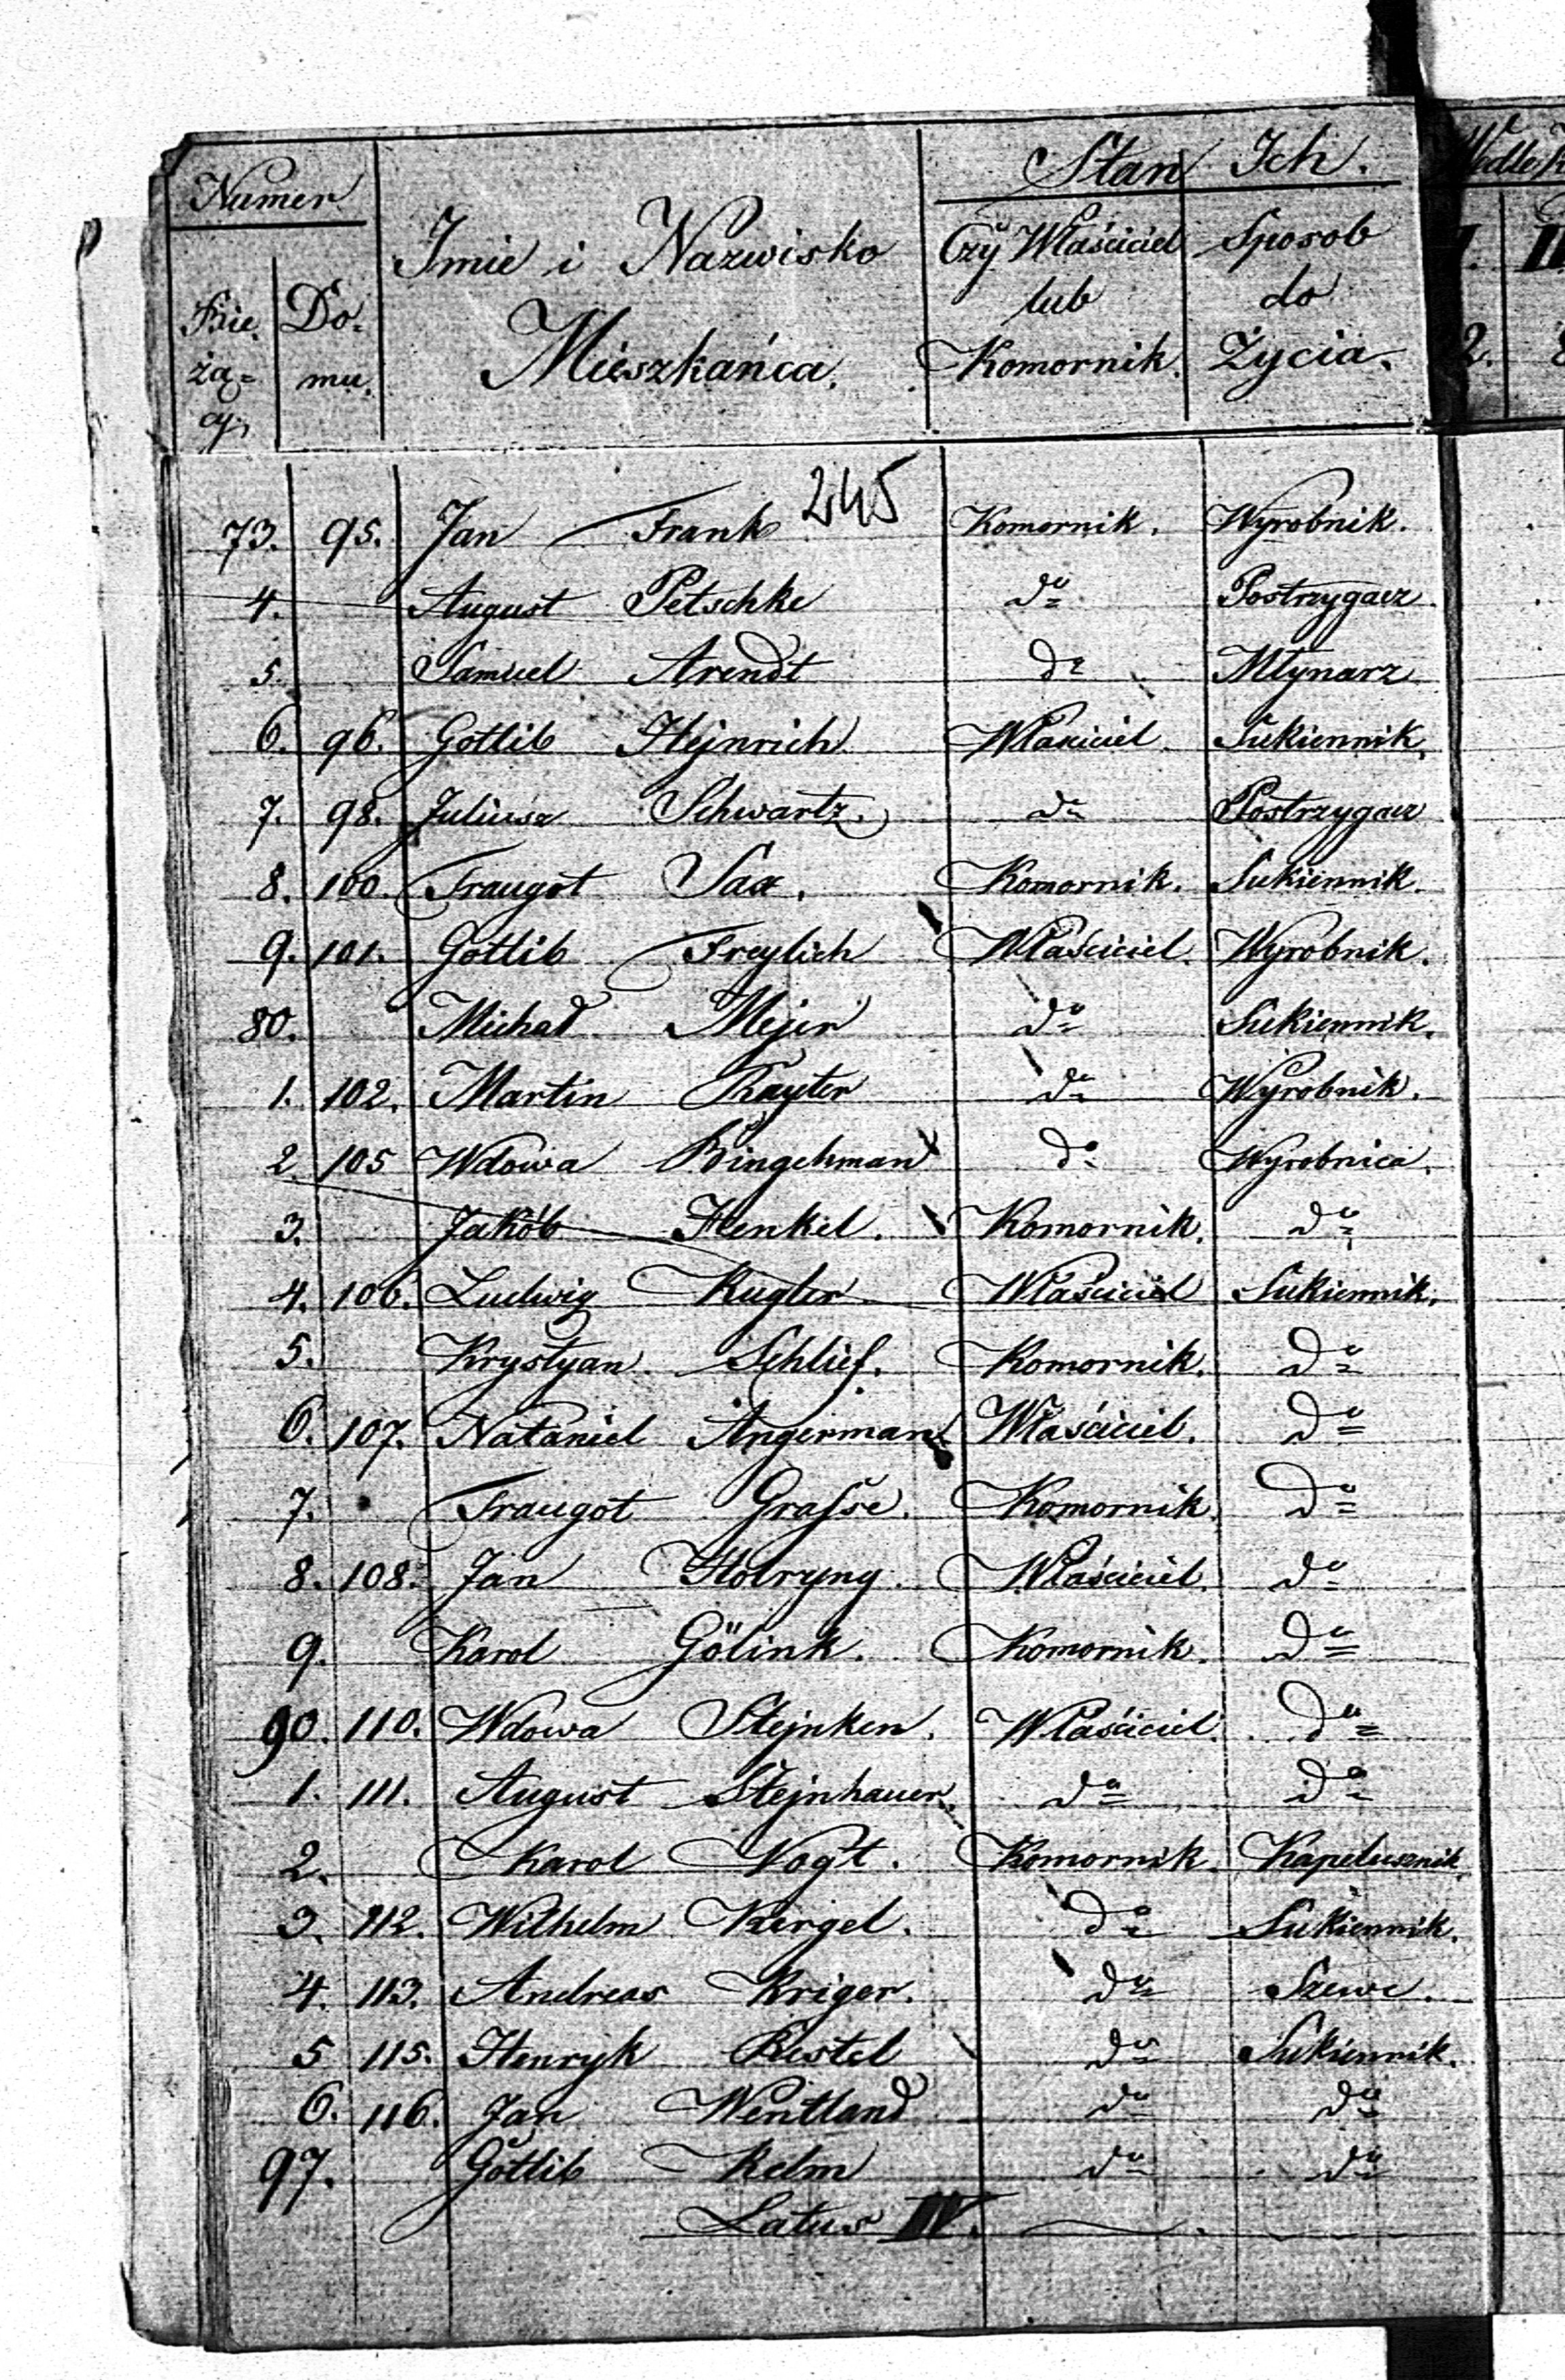 Numer
Stan Ich.
Bieżą=cy.
Do=mu.
Imie i Nazwisko
Mieszkańca.
Czÿ Właściciel
lub
Komornik.
Sposob
do
Życia.
245
73. 95. Jan Frank Komornik. Wyrobnik.
4. August Petschke do Postrzygacz
5. Samuel Arendt do Młynarz
6. 96. Gottlib Hejnrich Właściciel Sukiennik.
7. 98. Juliusz Schwartz. do Postrzygacz
8. 100. Traugot Sax. Komornik. Sukiennik.
9. 101. Gottlib Freylich Właściciel. Wyrobnik.
80. Michał Mejer do Sukiennik.
1. 102. Martin Rayter do Wyrobnik.
2 105 Wdowa Bingehman do Wyrobnica.
3. Jakób Henkel. Komornik. do
4. 106. Ludwig Kugler Właściciel Sukiennik.
5. Krystyan Schlief. Komornik. do
6. 107. Nataniel Angerman Właściciel. do
7. Traugot Grasse. Komornik. do
8. 108. Jan Holryng. Właściciel. do
9. Karol Gölink. Komornik. do
90. 110. Wdowa Stejnken. Właściciel. do
1. 111. August Stejnhauer. do do
2. Karol Vogt. Komornik. Kapelusznik
3. 112. Wilhelm Kergel. do Sukiennik.
4. 113. Andreas Kriger. do Szewc.
5 115. Henryk Restel do Sukiennik.
6. 116. Jan Wentland do do
97. Gottlib Kelm do do
Latus IV.